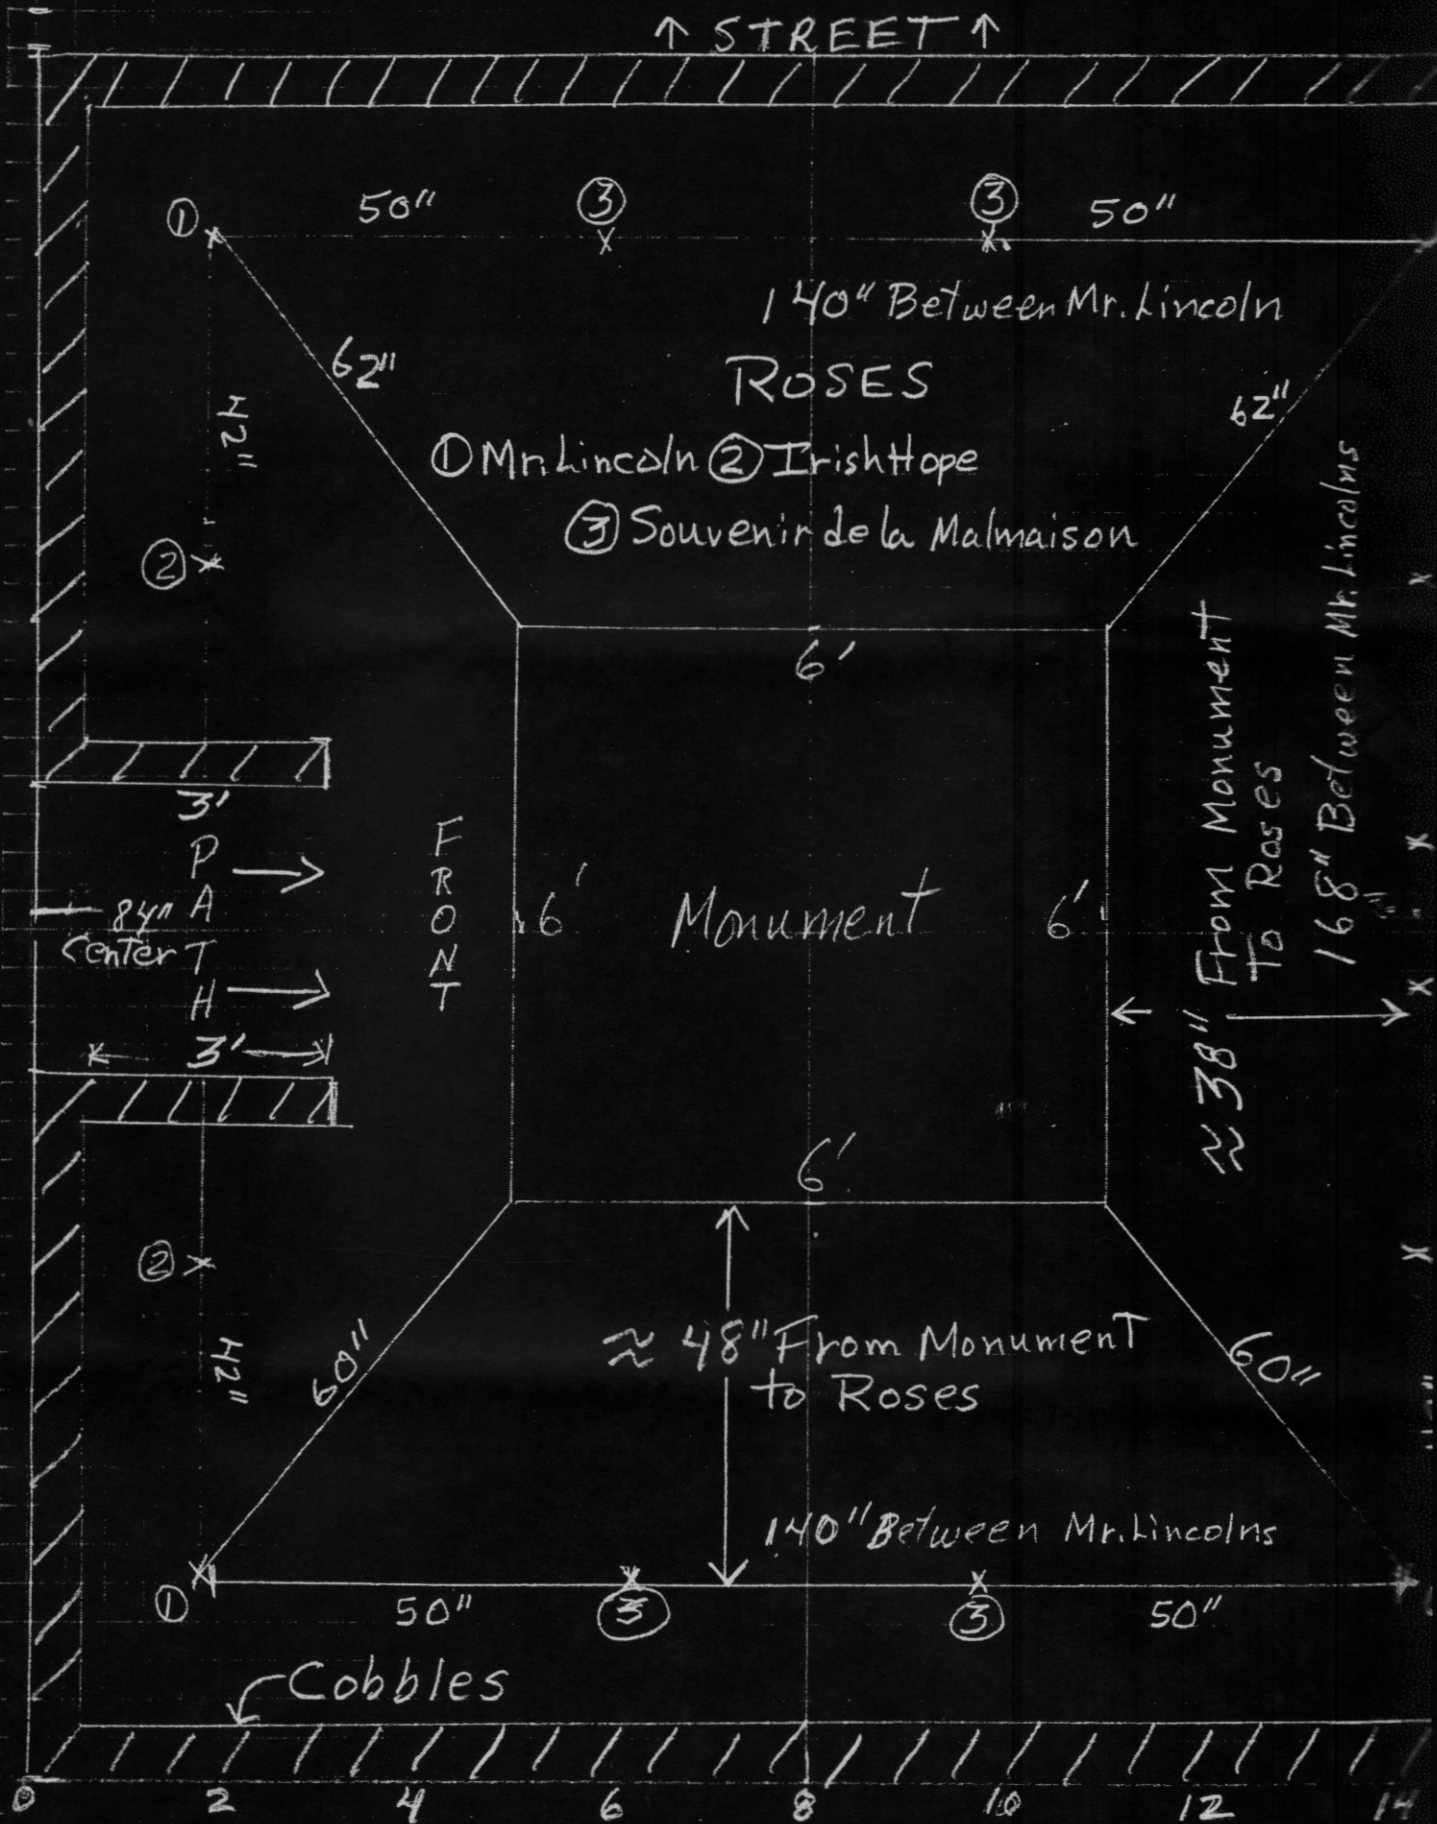 ↑ STREET ↑
① 50" ③ ③ 50"
140" Between Mr. Lincoln
62"
ROSES
62"
42"
① Mr. Lincoln ② Irish Hope
③ Souvenir de la Malmaison
②
6'
3'
PATH
84" Center
3'
FRONT
6'
Monument
6'
≈ 38" From Monument
To Roses
168" Between Mr. Lincolns
6'
②
42"
60"
≈ 48" From Monument
to Roses
60"
140" Between Mr. Lincolns
① 50" ③ ③ 50"
Cobbles
0 2 4 6 8 10 12 14